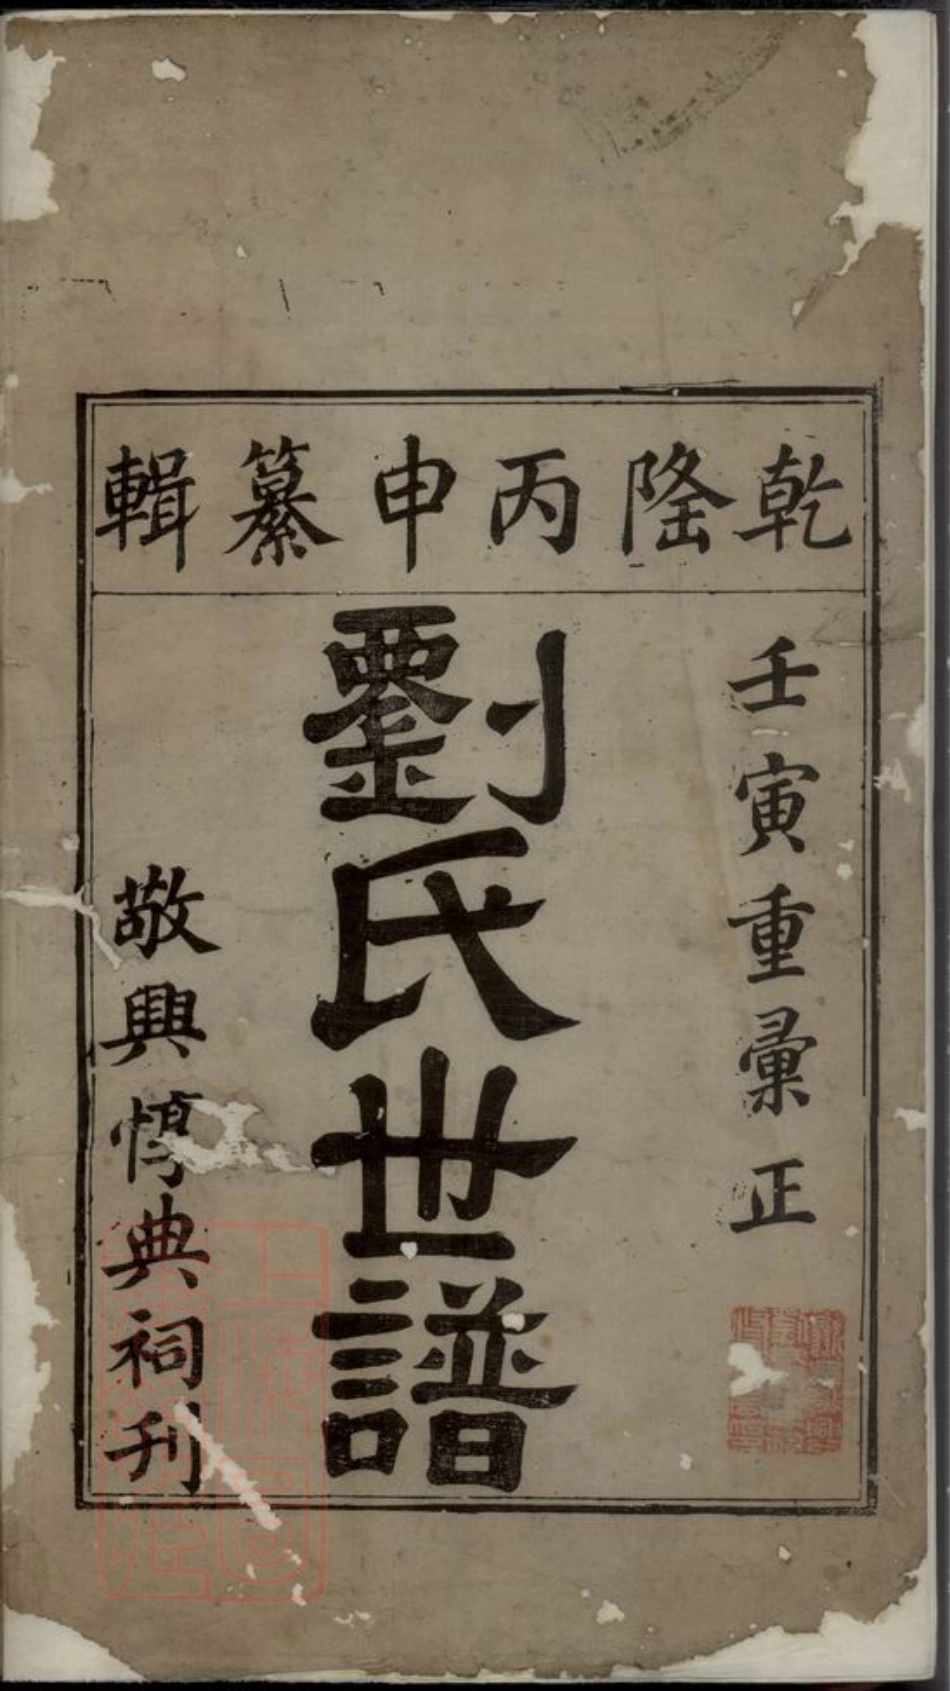 乾隆丙申纂輯
壬寅重彙正
劉氏世譜
敬興惇典祠刋